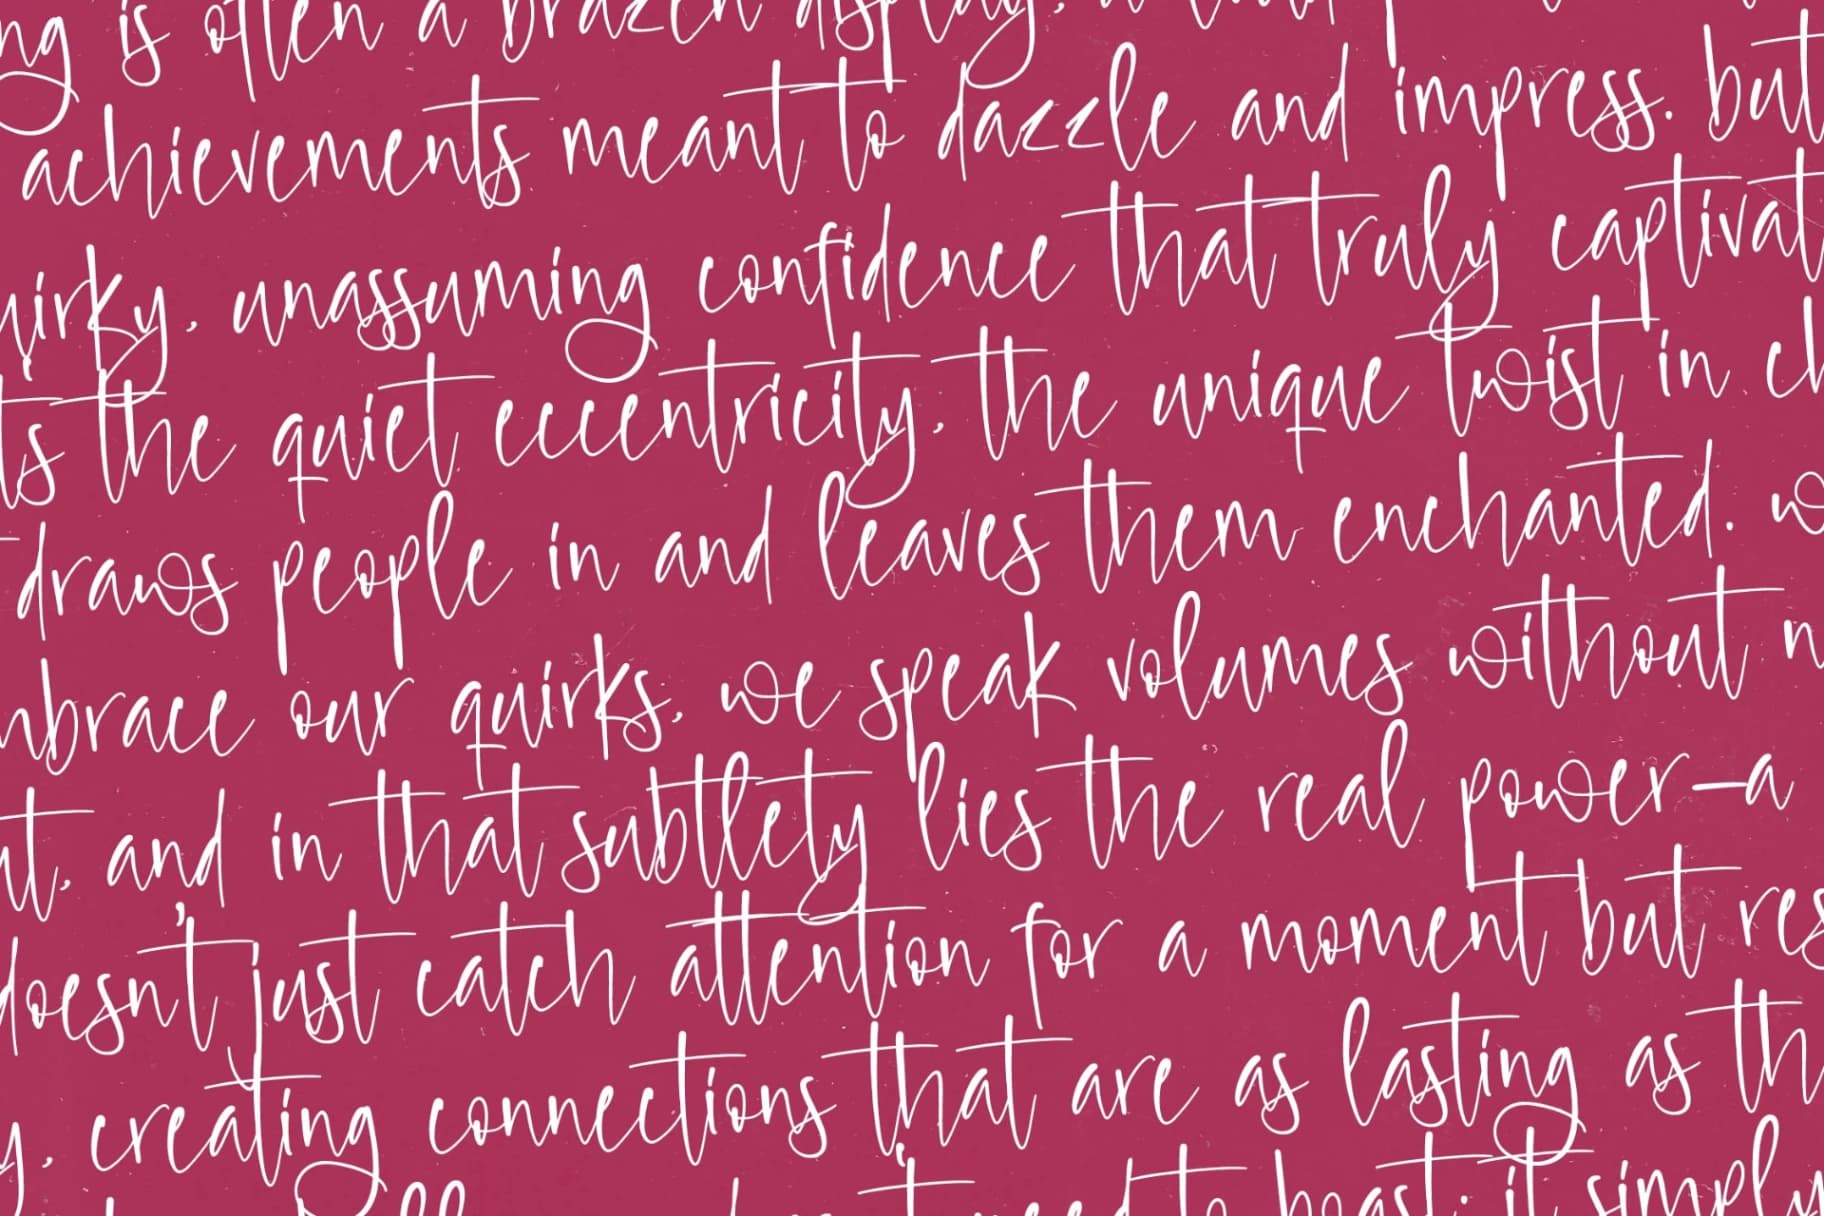 ng is often a brazen display, a
achievements meant to dazzle and impress. but
uirky, unassuming confidence that truly captivat
ts the quiet eccentricity, the unique twist in ch
draws people in and leaves them enchanted. w
mbrace our quirks, we speak volumes without n
ut, and in that subtlety lies the real power—a
doesn't just catch attention for a moment but res
y, creating connections that are as lasting as th
need to boast; it simply